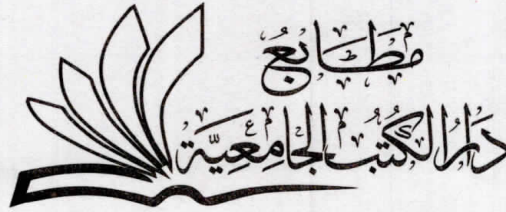 مَطَابِعُ
دَارُ الكُتُبِ الجَامِعِيَّة